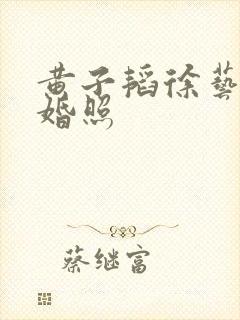 黄子韬徐艺
婚照
蔡继富